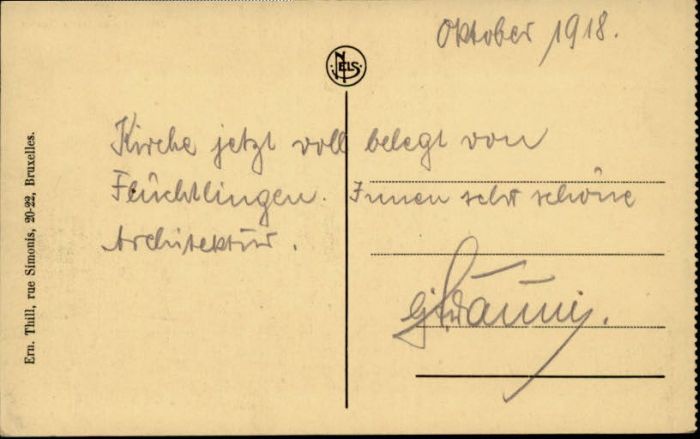 Oktober 1918.
NELS
Kirche jetzt voll belegt von
Flüchtlingen. Innen sehr schöne
Architektur.
Ern. Thill, rue Simonis, 20-22, Bruxelles.